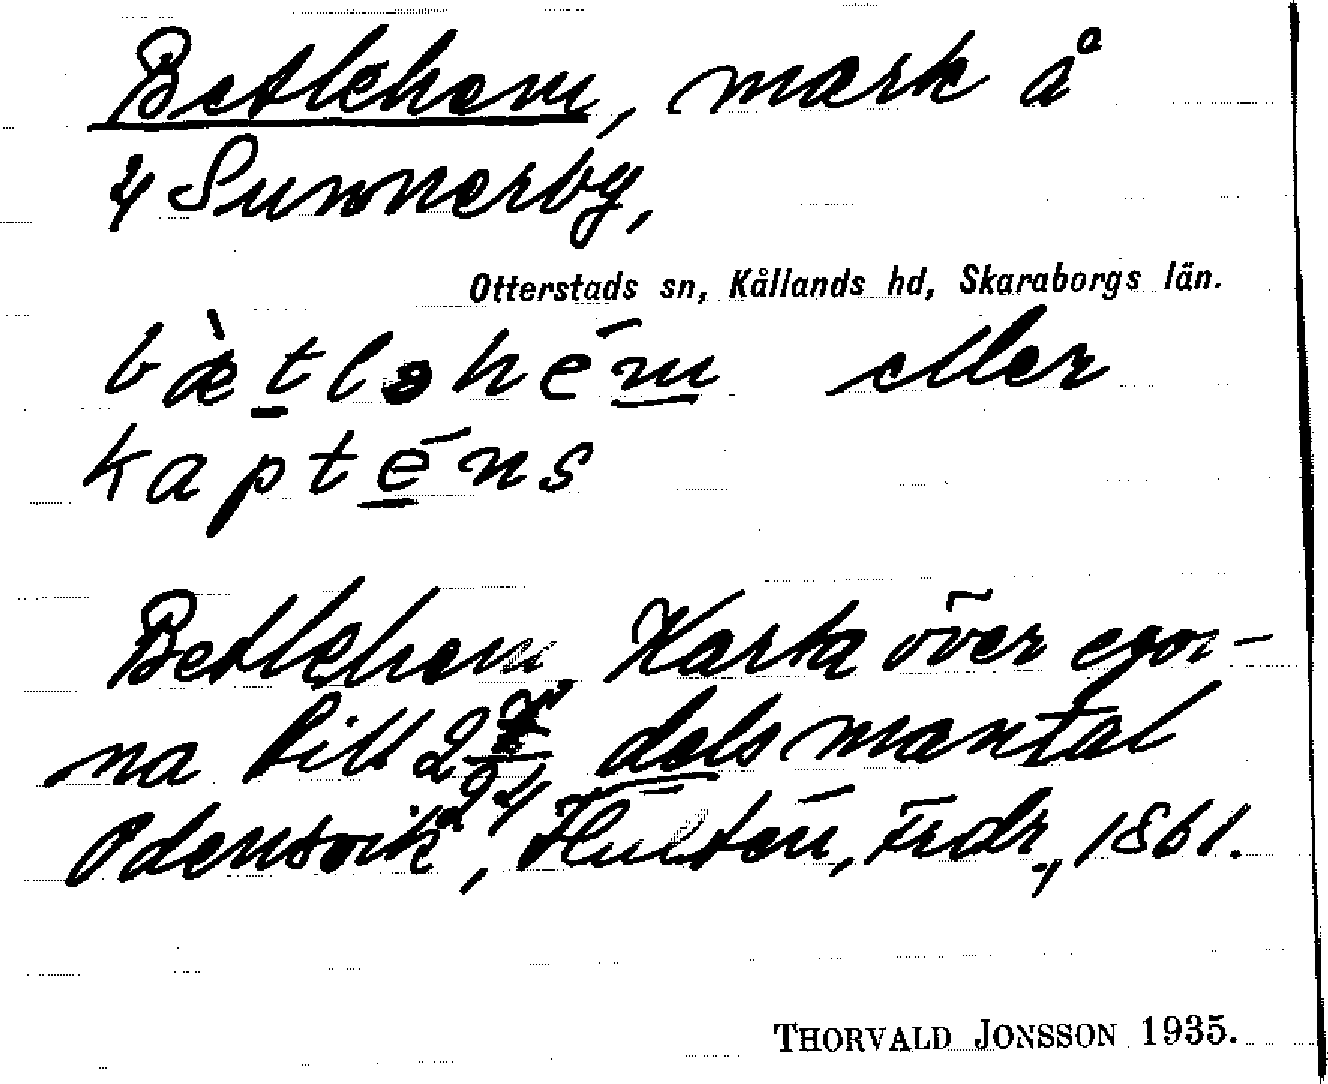 Betlehem, mark å
4 Sunnerby,
Otterstads sn, Kållands hd, Skaraborgs län.
bæ̀tləhém eller
kapténs
Betlehem Karta över egor-
na till 2 dels mantal
Odensvik, Hultén, Fr dr, 1861.
THORVALD JONSSON 1935.